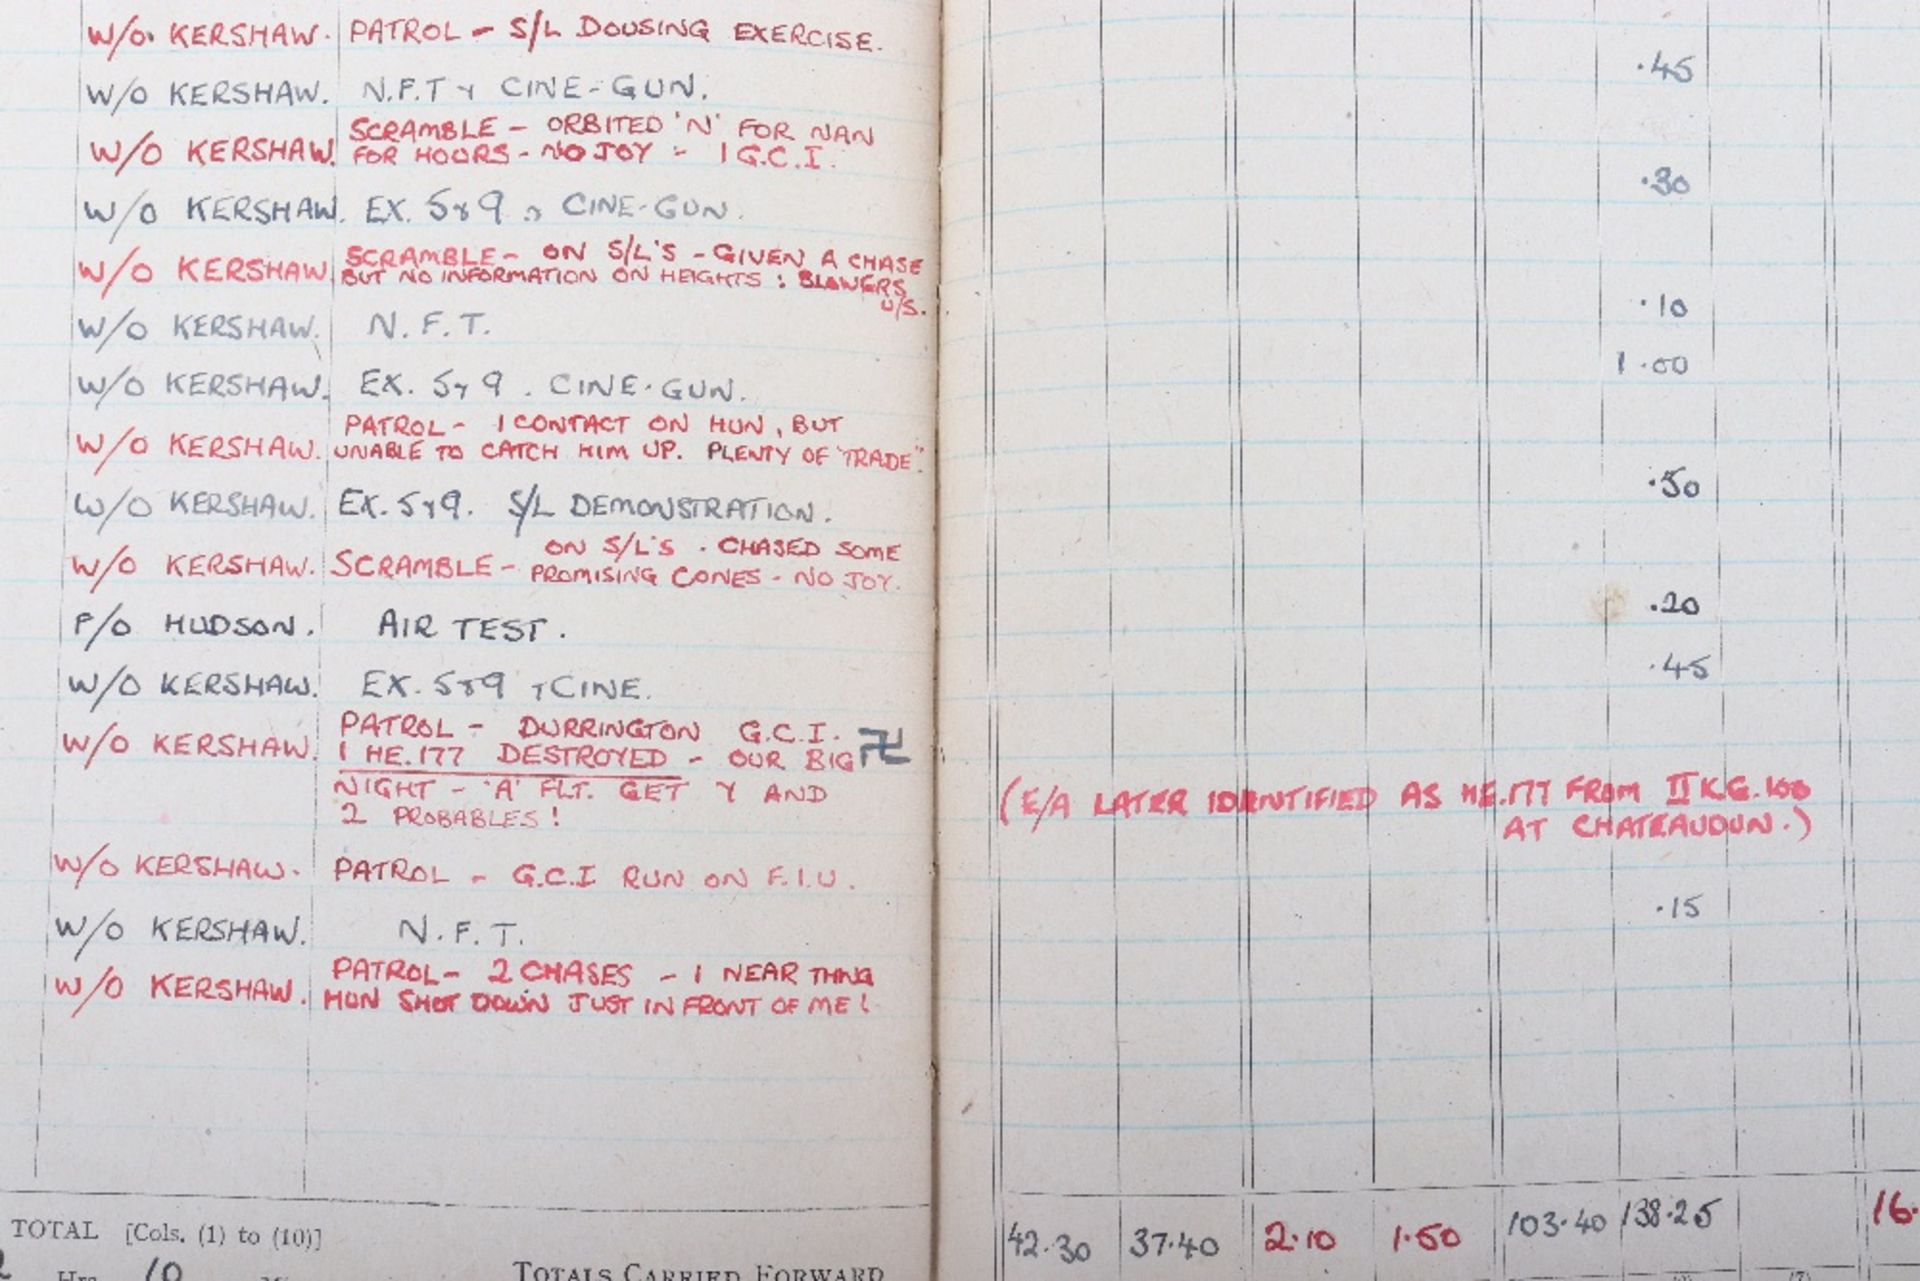 W/O. KERSHAW. PATROL - S/L DOUSING EXERCISE.
W/O KERSHAW. N.F.T + CINE-GUN. .45
W/O KERSHAW. SCRAMBLE - ORBITED 'N' FOR NAN
FOR HOURS - NO JOY - 1 G.C.I.
W/O KERSHAW. EX. 5+9 CINE-GUN. .30
W/O KERSHAW SCRAMBLE - ON S/L'S - GIVEN A CHASE
BUT NO INFORMATION ON HEIGHTS : BLOWERS
U/S.
W/O KERSHAW. N.F.T. .10
W/O KERSHAW. EX. 5+9. CINE-GUN. 1.00
W/O KERSHAW. PATROL - 1 CONTACT ON HUN, BUT
UNABLE TO CATCH HIM UP. PLENTY OF "TRADE".
W/O KERSHAW. EX. 5+9. S/L DEMONSTRATION. .50
W/O KERSHAW. SCRAMBLE - ON S/L'S. CHASED SOME
PROMISING CONES - NO JOY.
F/O HUDSON. AIR TEST. .20
W/O KERSHAW. EX. 5+9 + CINE. .45
W/O KERSHAW. PATROL - DURRINGTON G.C.I. 卐
1 HE.177 DESTROYED - OUR BIG
NIGHT - 'A' FLT. GET 4 AND
2 PROBABLES!
(E/A LATER IDENTIFIED AS HE.177 FROM II K.G. 100
AT CHATEAUDUN.)
W/O KERSHAW. PATROL - G.C.I RUN ON F.I.U.
W/O KERSHAW. N.F.T. .15
W/O KERSHAW. PATROL - 2 CHASES - 1 NEAR THING
HUN SHOT DOWN JUST IN FRONT OF ME!
TOTAL [Cols. (1) to (10)]
42.30 37.40 2.10 1.50 103.40 138.25 16.
Hrs. 10
TOTALS CARRIED FORWARD